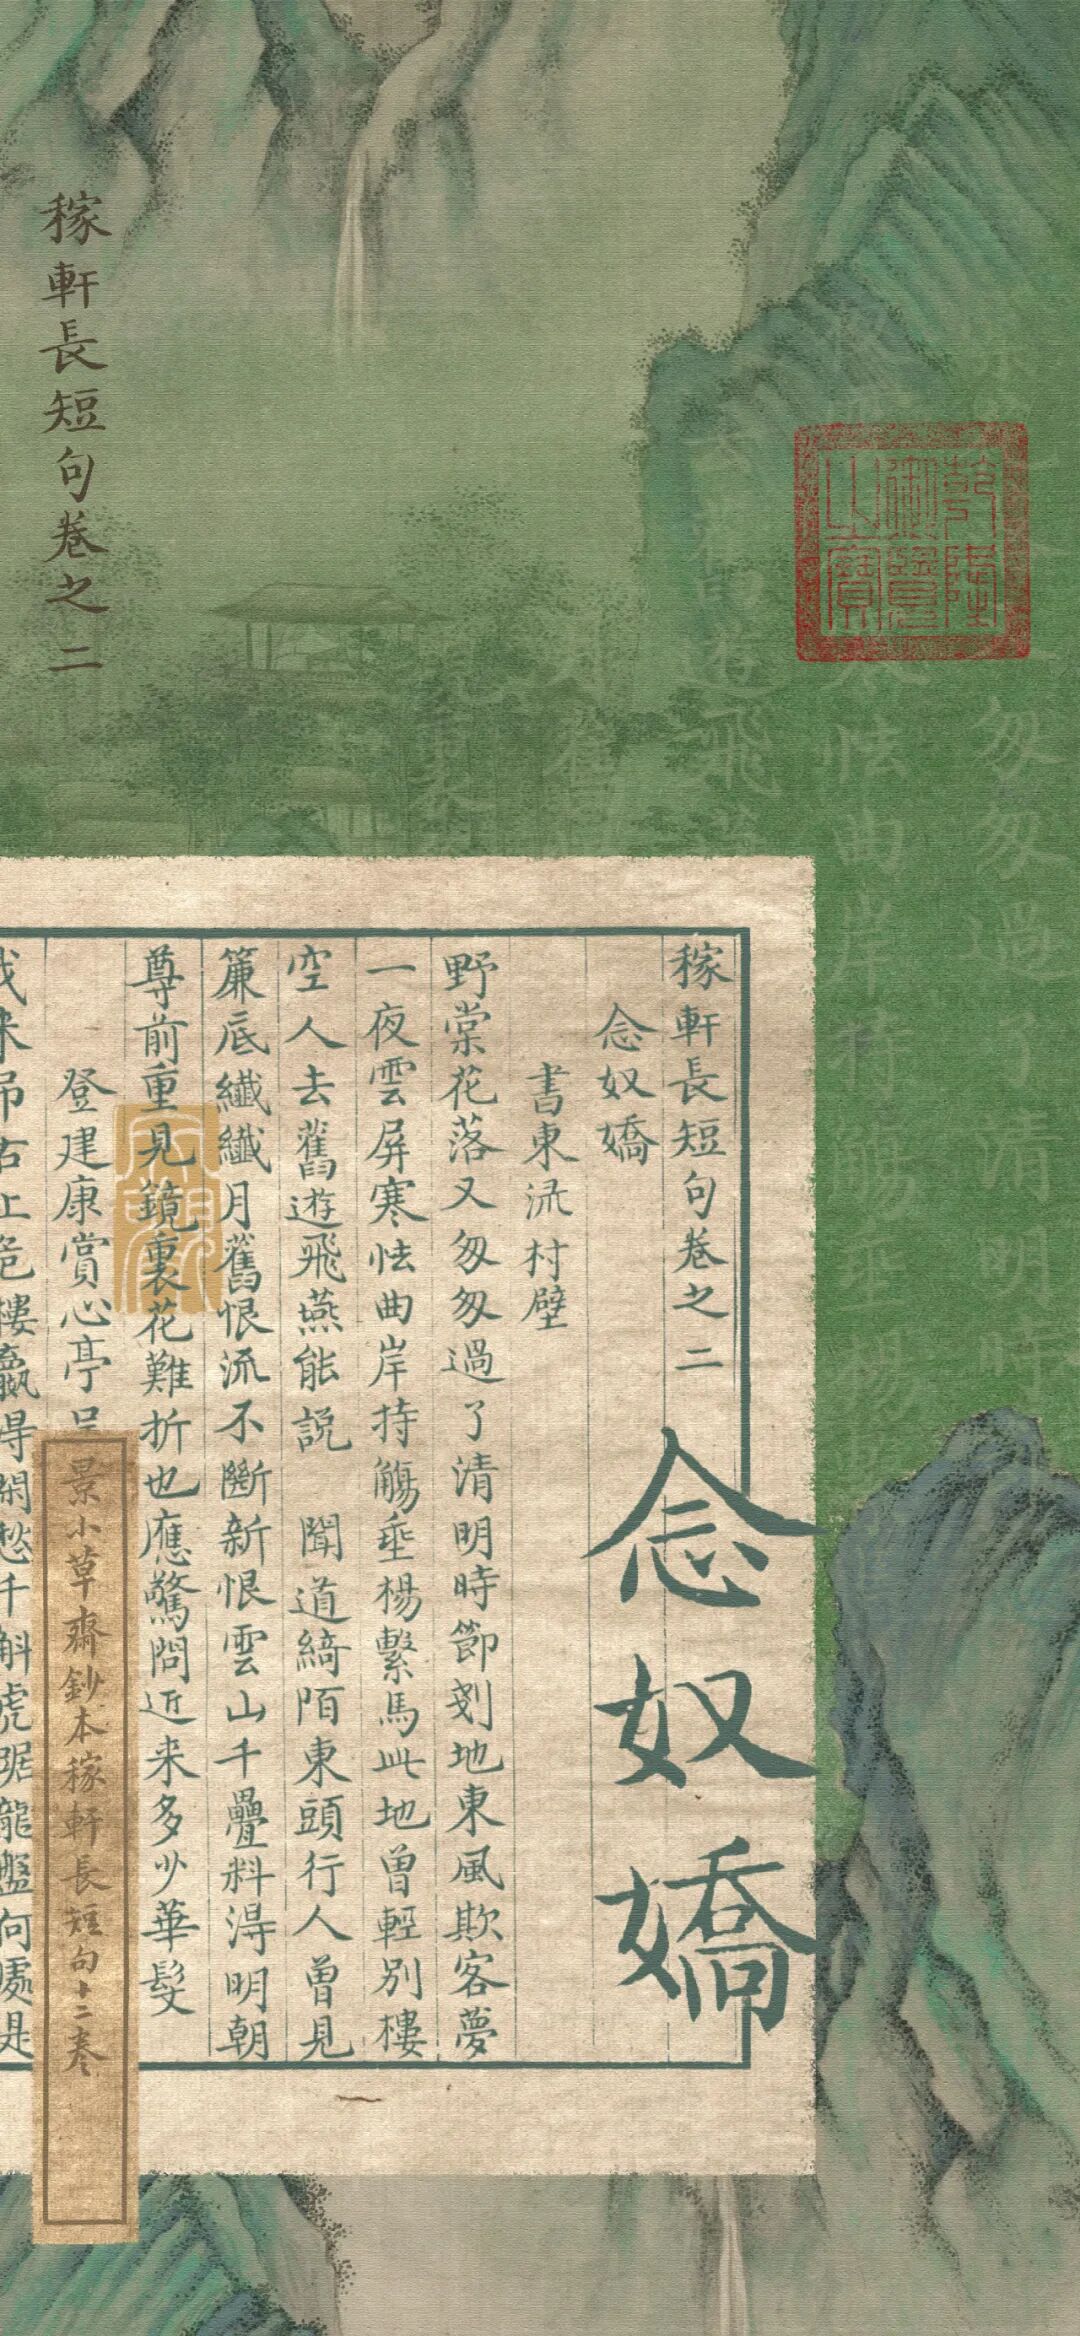 稼軒長短句卷之二
乾隆
御覽
之寶
稼軒長短句卷之二
念奴嬌
書東流村壁
野棠花落又匆匆過了清明時節剗地東風欺客夢
一夜雲屏寒怯曲岸持觴垂楊繫馬此地曾輕別樓
空人去舊遊飛燕能説 聞道綺陌東頭行人曾見
簾底纖纖月舊恨流不斷新恨雲山千疊料得明朝
尊前重見鏡裏花難折也應驚問近来多少華髮
登建康賞心亭呈
我来吊古上危樓贏得閑愁千斛虎踞龍盤何處是
念奴嬌
景小草齋鈔本稼軒長短句十二卷
匆匆過了清明時
怯曲岸持觴垂楊
遊飛燕